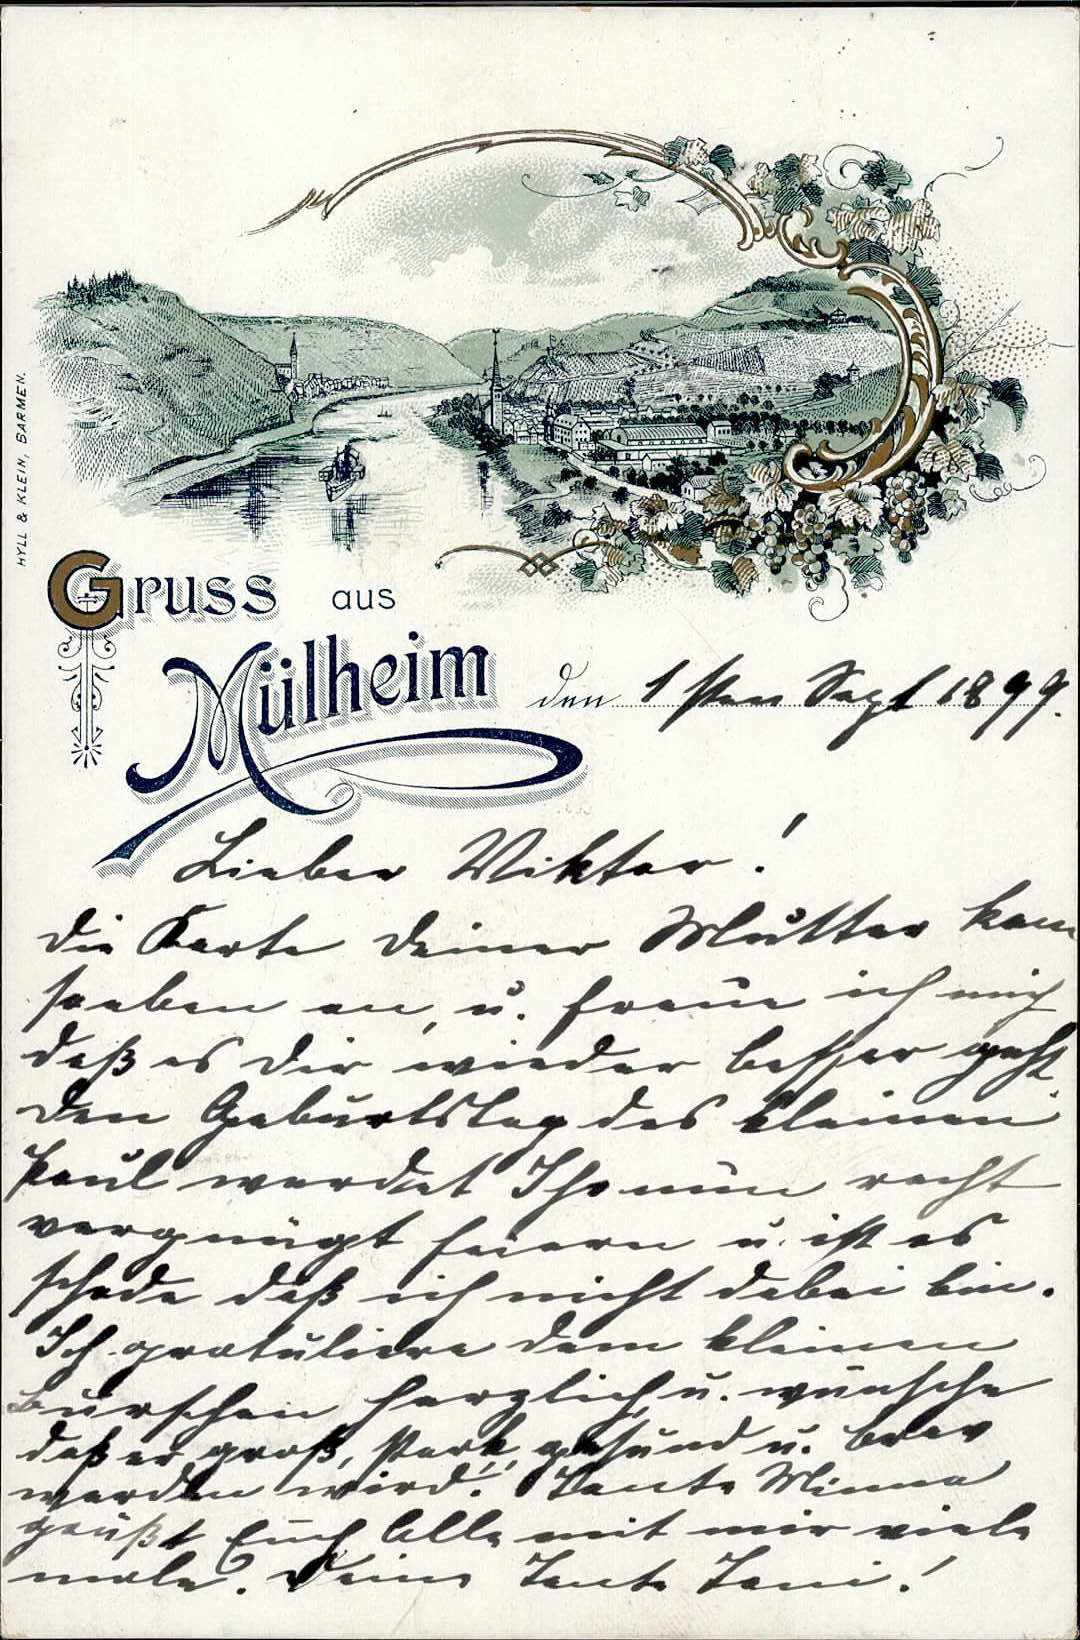 HYLL & KLEIN, BARMEN.
Gruss aus
Mülheim
den 1sten Sept 1899.
Lieber Viktor!
die Karte deiner Mutter kam
soeben an, u. freue ich mich
daß es dir wieder besser geht
den Geburtstag des kleinen
Paul werdet Ihr nun recht
vergnügt feiern u. ist es
schade daß ich nicht dabei bin.
Ich gratuliere dem kleinen
Burschen herzlich u. wünsche
daß er groß, stark, gesund u. brav
werden wird! Tante Minna
grüßt Euch Alle mit mir viele
male. Deine Tante Toni!